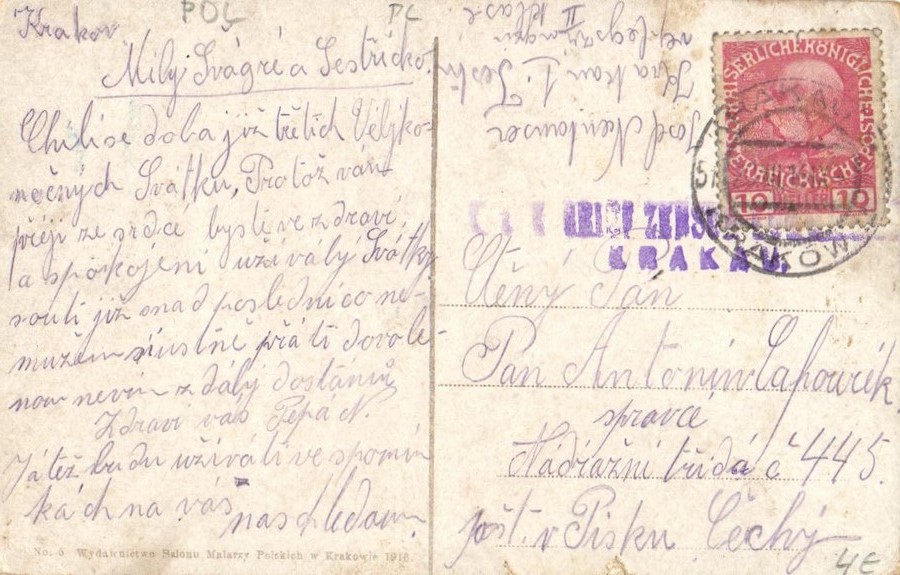 Krakov
POL
PL
Milý Švágre a Sestřičko.
Chílí se doba již třetích Velyko-
nočných Svátku, Protož vám
přeji ze srdce byste ve zdraví
a spokojeni užívály Svátky
soutí již snad poslední co ne-
mužem si ustně přáti dovole-
nou nevím zdály dostanu
Zdraví vás Pepá N.
Já též budu užívati ve spomín
kách na vás
nasch­ledanou
No. 5 Wydawnictwo Salonu Malarzy Polskich w Krakowie 1916.
Josef
Krakau I.
II klase.
KAISERLICHE KÖNIGLICHE ÖSTERREICHISCHE POST
1908
10 10
KRAKAU
KRAKÓW
K. u. K.
KRAKAU.
Ctěný Pán
Pan Antonín
správce
Nádražní třída č 445.
pošt. v Písku Čechý
4€